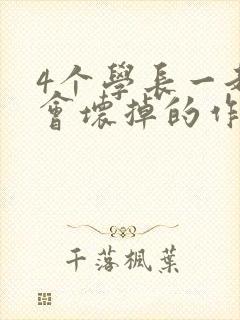 4个學長一
會壞掉的作
千落楓葉